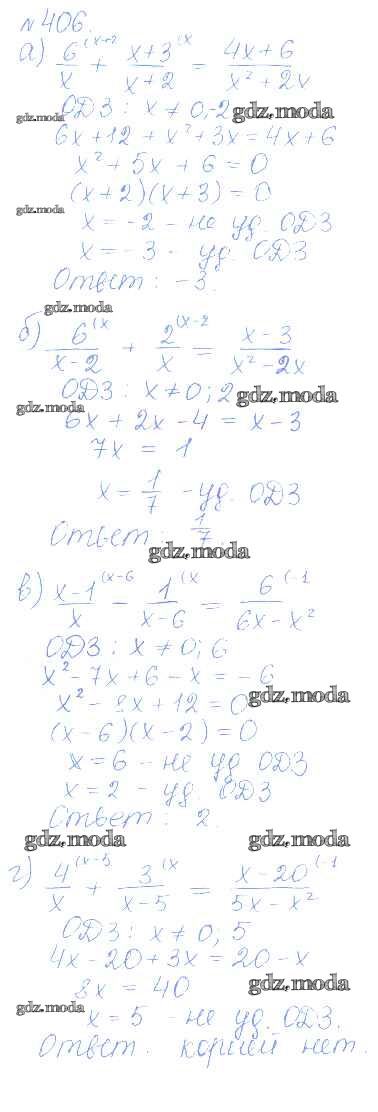 №406.
а) 6(x+2/x + x+3(x/x+2 = 4x+6/x²+2x
ОДЗ: x ≠ 0,-2 gdz.moda
gdz.moda
6x+12 + x²+3x = 4x+6
x²+5x+6 = 0
(x+2)(x+3) = 0
gdz.moda
x = -2 - не уд. ОДЗ
x = -3 - уд. ОДЗ
Ответ: -3.
gdz.moda
б) 6(x/x-2 + 2(x-2/x = x-3/x²-2x
ОДЗ: x≠0; 2 gdz.moda
gdz.moda
6x + 2x - 4 = x - 3
7x = 1
x = 1/7 - уд. ОДЗ
Ответ: 1/7
gdz.moda
в) x-1(x-6/x - 1(x/x-6 = 6(-1/6x-x²
ОДЗ: x ≠ 0; 6
x² - 7x + 6 - x = -6
gdz.moda
x² - 8x + 12 = 0
(x-6)(x-2) = 0
x = 6 - не уд ОДЗ
x = 2 - уд. ОДЗ
Ответ: 2.
gdz.moda gdz.moda
г) 4(x-5/x + 3(x/x-5 = x-20(-1/5x-x²
ОДЗ: x≠0; 5
4x-20+3x = 20-x
8x = 40 gdz.moda
gdz.moda
x = 5 - не уд. ОДЗ.
Ответ. корней нет.